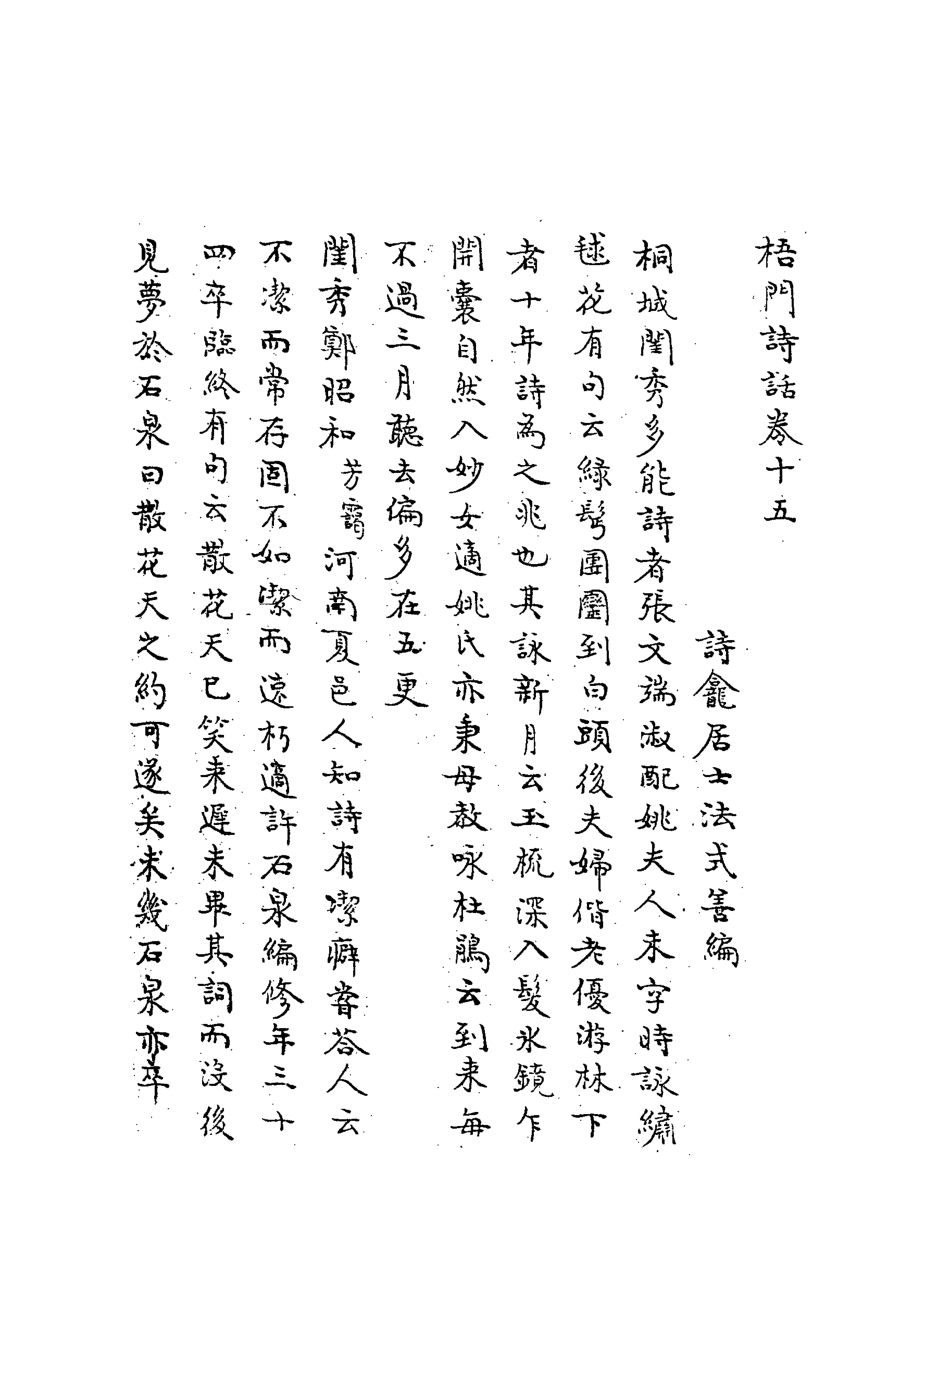 梧門詩話卷十五
詩龕居士法式善編
桐城閨秀多能詩者張文端淑配姚夫人未字時詠繡
毬花有句云綠鬢團圞到白頭後夫婦偕老優游林下
者十年詩為之兆也其詠新月云玉梳深入髮氷鏡乍
開囊自然入妙女適姚氏亦秉母教咏杜鵑云到来每
不過三月聽去偏多在五更
閨秀鄭昭和芳靄河南夏邑人知詩有潔癖嘗答人云
不潔而常存固不如潔而速朽適許石泉編修年三十
四卒臨終有句云散花天已笑来遲未畢其詞而没後
見夢於石泉曰散花天之約可遂矣未幾石泉亦卒